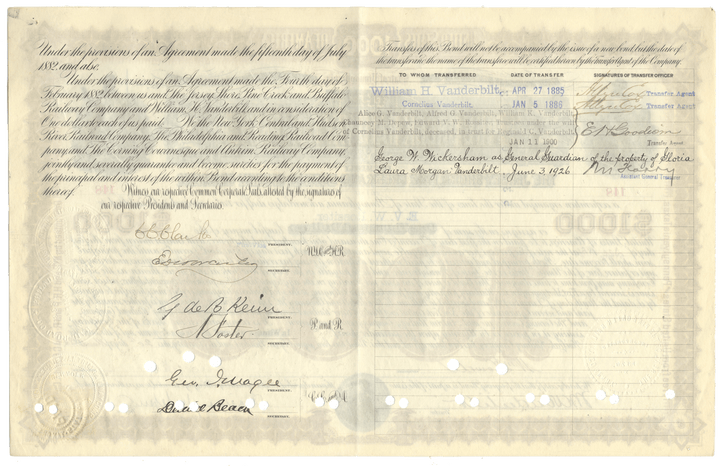 Under the provisions of an Agreement made the fifteenth day of July
1882 and also.
Under the provisions of an Agreement made the Fourth day of
February 1882 between us and The Jersey Shore, Pine Creek and Buffalo
Railway Company and William H. Vanderbilt, and in consideration of
One dollar to each of us paid. We the New York Central and Hudson
River Railroad Company, The Philadelphia and Reading Railroad Com-
pany, and The Corning Cowanesque and Antrim Railway Company,
jointly and severally guarantee and become sureties for the payment of
the principal and interest of the within Bond according to the conditions
thereof.
Witness our respective Common Corporate Seals, attested by the signatures
of our respective Presidents and Secretaries.
PRESIDENT.
N.Y.C. & H.R.
SECRETARY.
G de B Keim
PRESIDENT.
P. and R.
Foster
SECRETARY.
Geo. J. Magee
PRESIDENT.
SECRETARY.
Transfers of this Bond will not be accompanied by the issue of a new bond, but the date of
the transfer and the name of the transferree will be certified hereon by the transfer agent of the Company.
TO WHOM TRANSFERRED DATE OF TRANSFER SIGNATURES OF TRANSFER OFFICER
William H. Vanderbilt. APR 27 1885 Transfer Agent
Cornelius Vanderbilt. JAN 5 1886 Transfer Agent
Alice G. Vanderbilt, Alfred G. Vanderbilt, William K. Vanderbilt,
Chauncey M. Depew,
of Cornelius Vanderbilt, deceased, in trust for Reginald C. Vanderbilt,
JAN 11 1900 Transfer Agent
George W. Wickersham as General Guardian of the property of Gloria
Laura Morgan Vanderbilt, June 3, 1926
Assistant General Treasurer
$1000